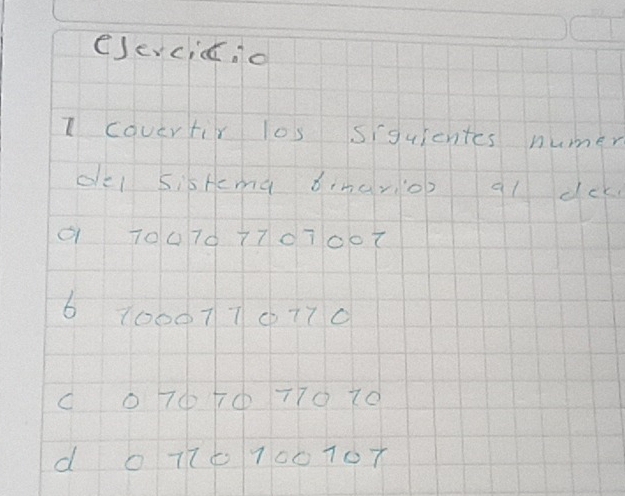 ejercicio
1 covertir los siguientes numer
del sistema binarios al dec
a 100101101001
b 1000110110
c 0101011010
d 0110100101